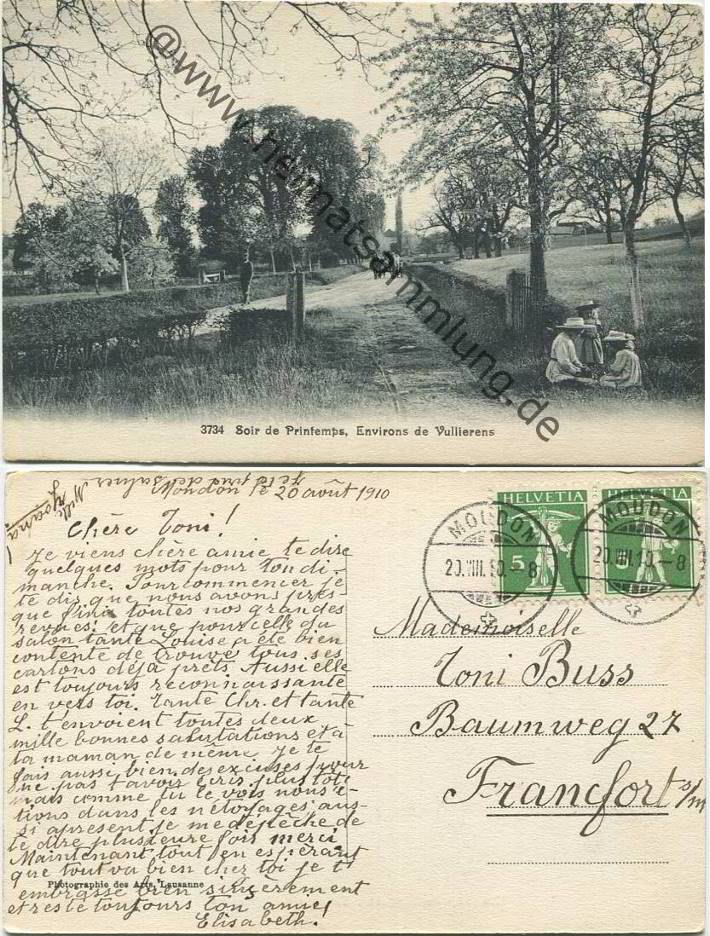 @www.heimatsammlung.de
3734 Soir de Printemps, Environs de Vullierens
Moudon le 20 août 1910
Chère Toni!
Je viens chère amie te dire
quelques mots pour ton di-
manche. Pour commencer je
te dis que nous avons pres-
que fini toutes nos grandes
revues! et que pour celle du
salon tante Louise a été bien
contente de trouve tous ses
cartons déjà prêts. Aussi elle
est toujours reconnaissante
en vers toi. Tante Chr. et tante
L. t'envoient toutes deux
mille bonnes salutations et à
ta maman de même. Je te
fais aussi bien des excuses pour
ne pas t'avoir écris plus tôt
mais comme tu le vois nous é-
tions dans les nétoyages aus-
si apresent je me dépêche de
te dire plusieure fois merci.
Maintenant tout en espérant
que tout va bien chez toi je t'
embrasse bien sincerement
et reste toujours ton amie!
Elisabeth!
Photographie des Arts, Lausanne
HELVETIA
5
HELVETIA
MOUDON
20.VIII.10.-8
MOUDON
20.VIII.10.-8
Mademoiselle
Toni Buss
Baumweg 27
Francfort s/m